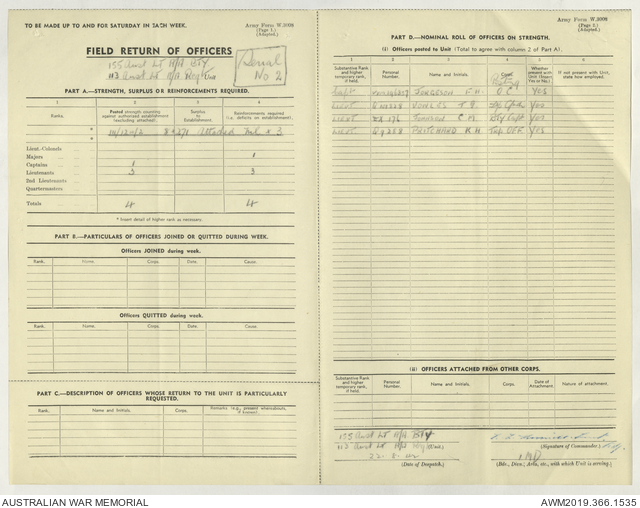 TO BE MADE UP TO AND FOR SATURDAY IN EACH WEEK.
Army Form W.3008
(Page 1.)
(Adapted.)
FIELD RETURN OF OFFICERS
155 Aust Lt A/A Bty
113 Aust Lt A/A Regt
Serial
No 2
PART A.—STRENGTH, SURPLUS OR REINFORCEMENTS REQUIRED.
1 2 3 4
Ranks.
Posted strength counting against authorised establishment (excluding attached).
Surplus to Establishment.
Reinforcements required (i.e. deficits on establishment).
Attached
Lieut.-Colonels
Majors 1
Captains 1
Lieutenants 3 3
2nd Lieutenants
Quartermasters
Totals 4 4
* Insert detail of higher rank as necessary.
PART B.—PARTICULARS OF OFFICERS JOINED OR QUITTED DURING WEEK.
Officers JOINED during week.
Rank. Name. Corps. Date. Cause.
Officers QUITTED during week.
Rank. Name. Corps. Date. Cause.
PART C.—DESCRIPTION OF OFFICERS WHOSE RETURN TO THE UNIT IS PARTICULARLY REQUESTED.
Rank. Name and Initials. Corps. Remarks (e.g., present whereabouts, if known).
Army Form W.3008
(Page 2.)
(Adapted.)
PART D.—NOMINAL ROLL OF OFFICERS ON STRENGTH.
(i) Officers posted to Unit (Total to agree with column 2 of Part A).
1 2 3 4 5 6
Substantive Rank and higher temporary rank, if held.
Personal Number.
Name and Initials.
Corps.
Whether present with Unit (Insert Yes or No.)
If not present with Unit, state how employed.
Capt JORGESON F. H. O C YES
LIEUT YES
LIEUT C M YES
LIEUT PRITCHARD K H YES
(ii) OFFICERS ATTACHED FROM OTHER CORPS.
Substantive Rank and higher temporary rank, if held.
Personal Number.
Name and Initials.
Corps.
Date of Attachment.
Nature of attachment.
155 Aust Lt A/A Bty
113 Aust Lt A/A
22. 8. 42
(Date of Despatch.)
(Signature of Commander.)
(Bde., Divn., Area, etc., with which Unit is serving.)
AUSTRALIAN WAR MEMORIAL
AWM2019.366.1535